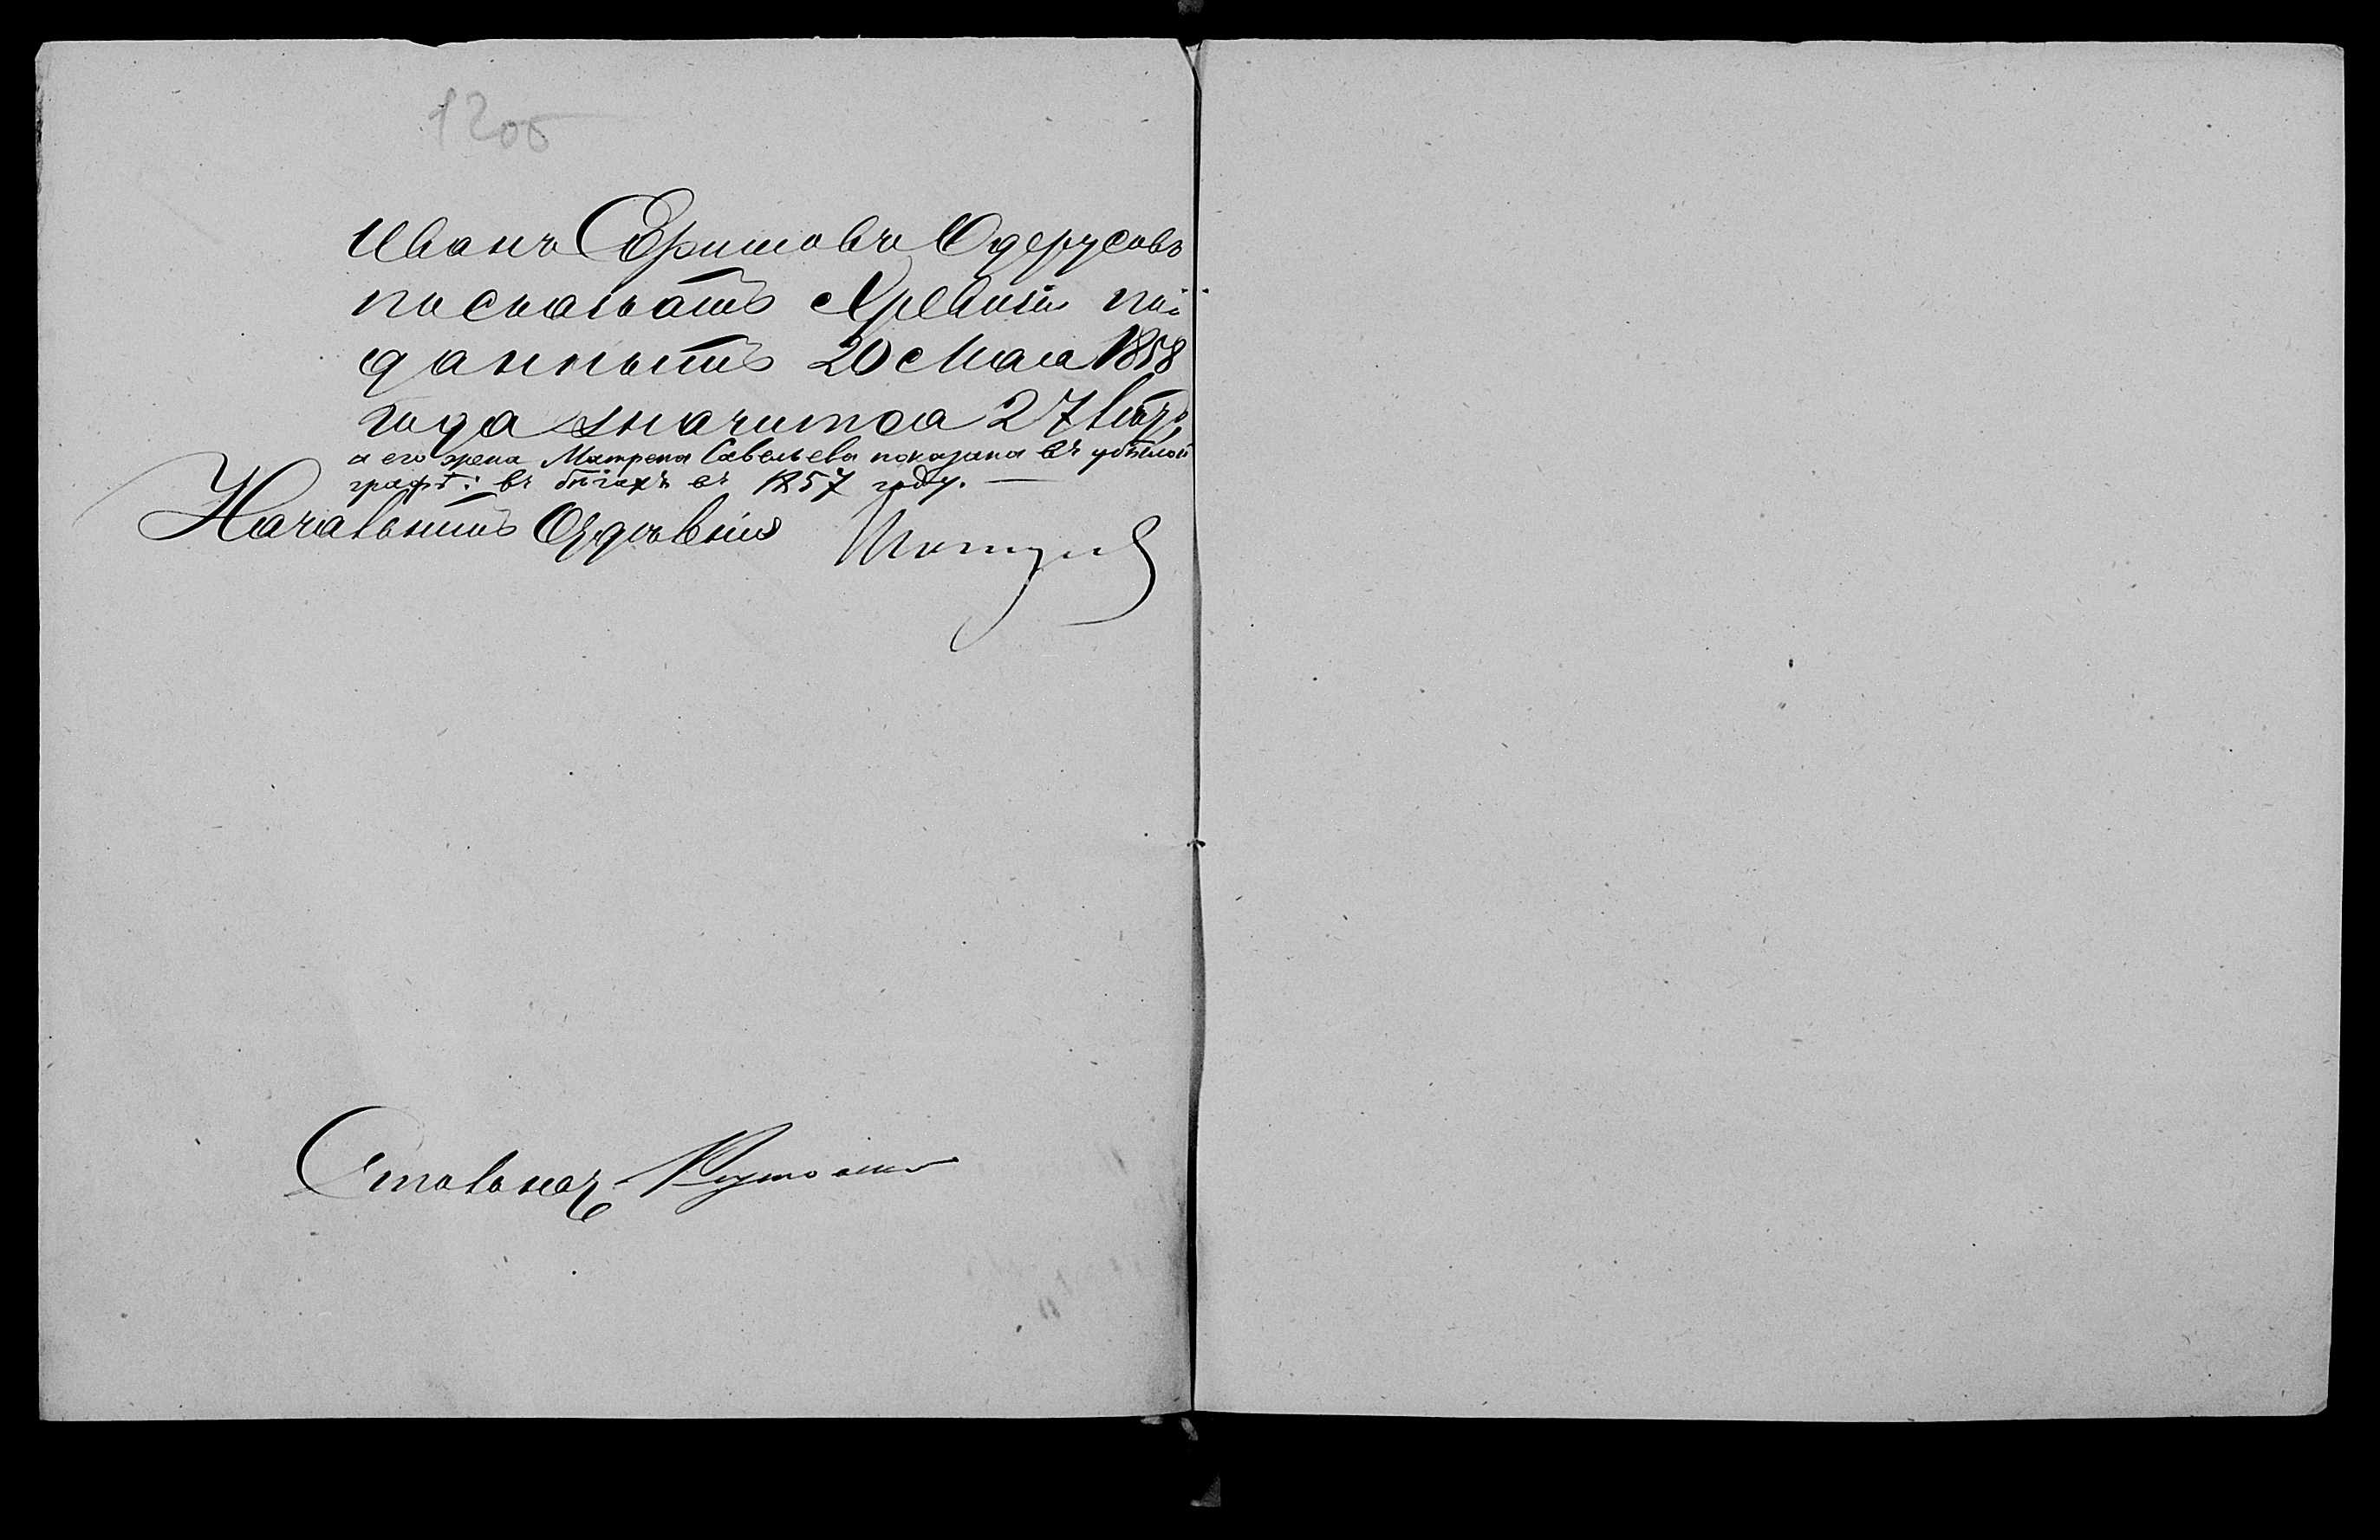 12об
Иванъ Ефимовъ Одерусовъ
по сказкамъ X ревизіи по
даннымъ 20 Мая 1858
года значится 27 лѣтъ,
а его жена Матрена Савельева показана въ убылой
графѣ: въ бѣгахъ въ 1857 году. —
Начальникъ Отдѣленія
Столонач.